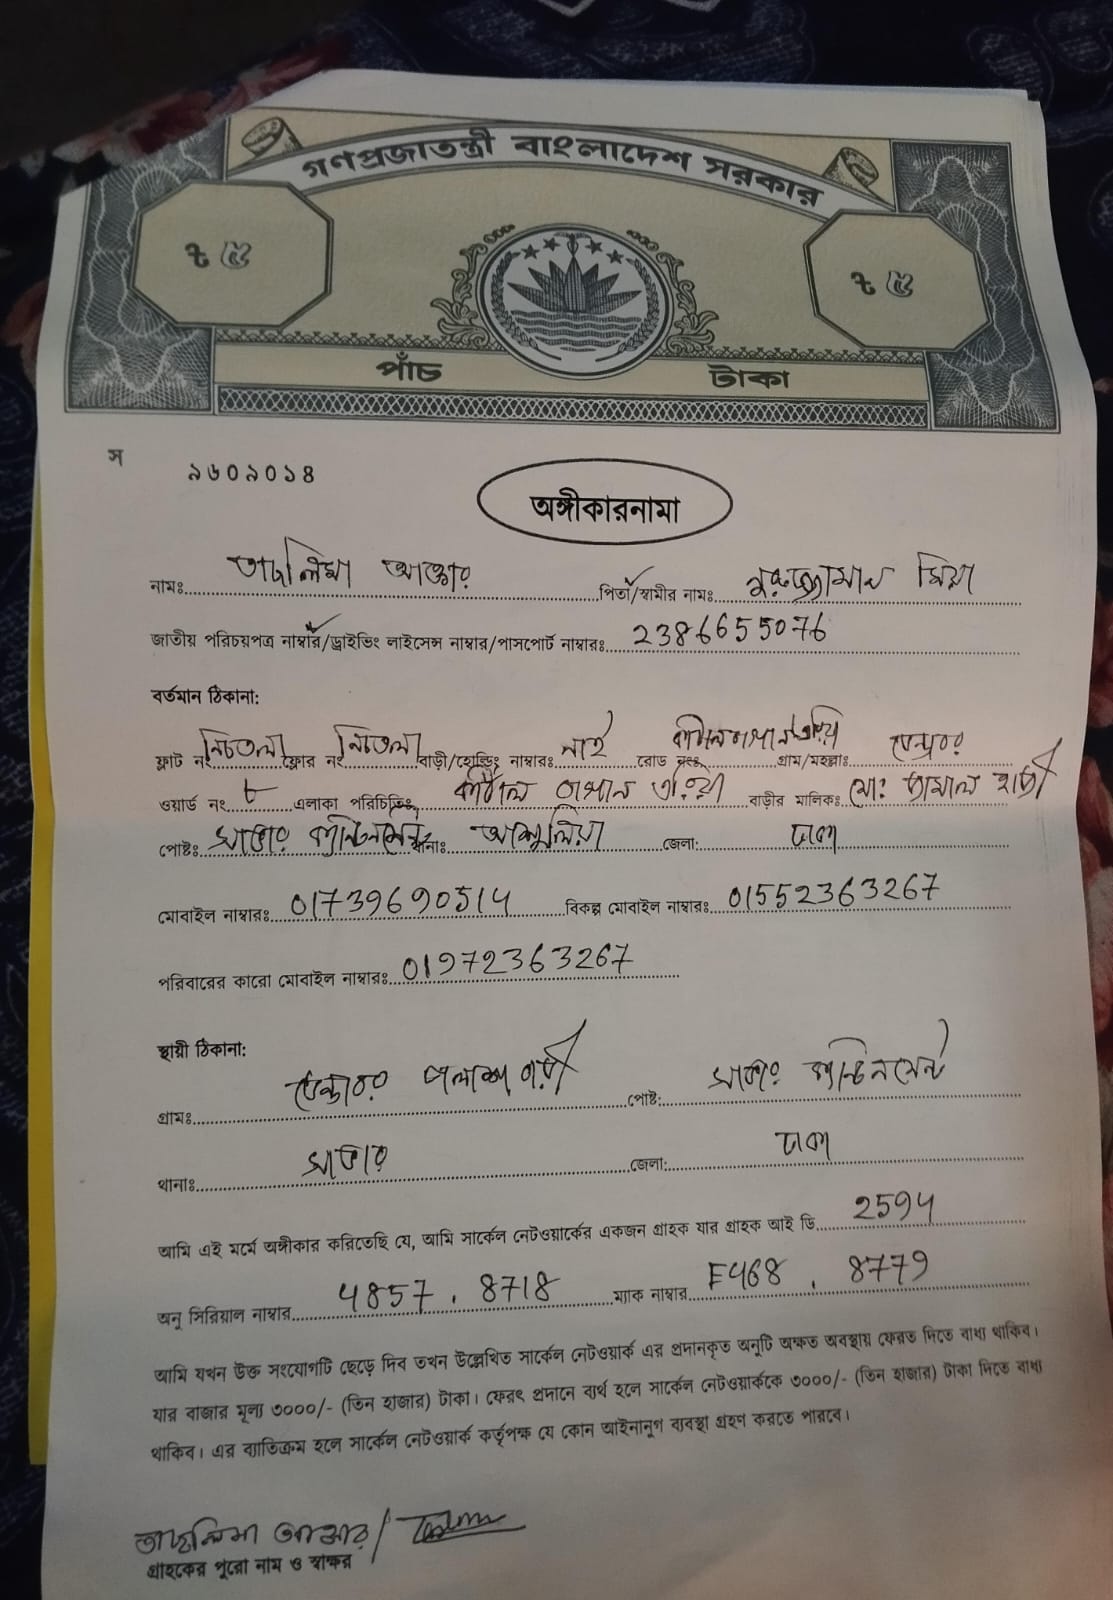 গণপ্রজাতন্ত্রী বাংলাদেশ সরকার
৳ ৫ ৳ ৫
পাঁচ টাকা
স ৯৬০৯০১৪
অঙ্গীকারনামা
নামঃ তাছলিমা আক্তার পিতা/স্বামীর নামঃ নুরুজ্জামান মিয়া
জাতীয় পরিচয়পত্র নাম্বার/ড্রাইভিং লাইসেন্স নাম্বার/পাসপোর্ট নাম্বারঃ 2386655076
বর্তমান ঠিকানা:
ফ্লাট নং নিচতলা ফ্লোর নং নিচতলা বাড়ী/হোল্ডিং নাম্বারঃ নাই রোড নং গ্রাম/মহল্লাঃ
ওয়ার্ড নং ৮ এলাকা পরিচিতি কাঁঠাল বাগান এরিয়া বাড়ীর মালিকঃ মো:
পোষ্টঃ সাভার ক্যান্টনমেন্ট থানাঃ আশুলিয়া জেলা: ঢাকা
মোবাইল নাম্বারঃ 01739690514 বিকল্প মোবাইল নাম্বারঃ 01552363267
পরিবারের কারো মোবাইল নাম্বারঃ 01972363267
স্থায়ী ঠিকানা:
গ্রামঃ পলাশ বাড়ী পোষ্ট: সাভার ক্যান্টিনমেন্ট
থানাঃ সাভার জেলা: ঢাকা
আমি এই মর্মে অঙ্গীকার করিতেছি যে, আমি সার্কেল নেটওয়ার্কের একজন গ্রাহক যার গ্রাহক আই ডি 2594
অনু সিরিয়াল নাম্বার 4857 . 8718 ম্যাক নাম্বার F468 . 8779
আমি যখন উক্ত সংযোগটি ছেড়ে দিব তখন উল্লেখিত সার্কেল নেটওয়ার্ক এর প্রদানকৃত অনুটি অক্ষত অবস্থায় ফেরত দিতে বাধ্য থাকিব।
যার বাজার মূল্য ৩০০০/- (তিন হাজার) টাকা। ফেরৎ প্রদানে ব্যর্থ হলে সার্কেল নেটওয়ার্ককে ৩০০০/- (তিন হাজার) টাকা দিতে বাধ্য
থাকিব। এর ব্যাতিক্রম হলে সার্কেল নেটওয়ার্ক কর্তৃপক্ষ যে কোন আইনানুগ ব্যবস্থা গ্রহণ করতে পারবে।
তাছলিমা আক্তার/
গ্রাহকের পুরো নাম ও স্বাক্ষর